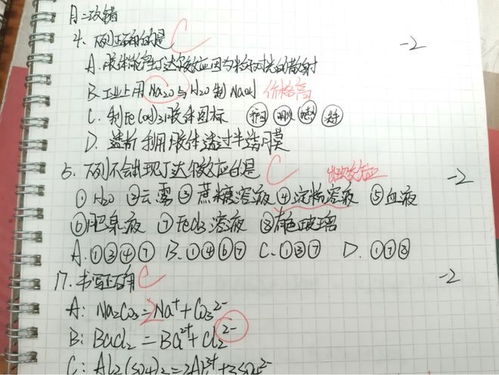 月二次错
4. 下列正确的是 C -2
A. 胶体能产生丁达尔效应因为粒子对光的散射
B. 工业上用Na₂O与H₂O制NaOH 价格高
C. 制Fe(OH)₃胶体图标
D. 透析利用胶体透过半透膜
5. 下列不会出现丁达尔效应的是 C -2
①H₂O ②云雾 ③蔗糖溶液 ④淀粉溶液 ⑤血液
⑥肥皂液 ⑦FeCl₃溶液 ⑧有色玻璃
A. ①③④⑦ B. ①④⑥⑦ C. ①③⑦ D. ①⑦⑧
17. 书写正确 C -2
A: Na₂CO₃=Na⁺+CO₃²⁻ 2
B: BaCl₂=Ba²⁺+Cl₂²⁻
C: Al₂(SO₄)₃=2Al³⁺+3SO₄²⁻